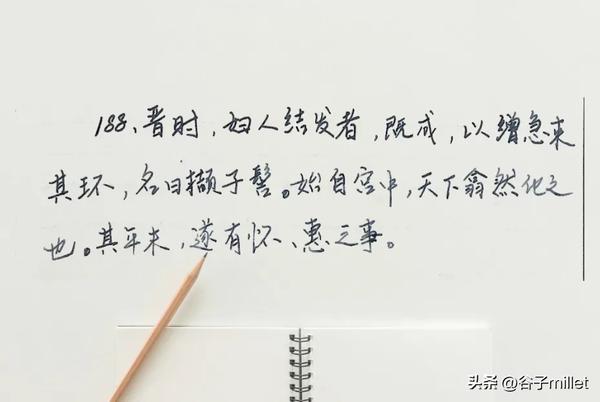 188、晋时，妇人结发者，既成，以缯急束
其环，名曰撷子髻。始自宫中，天下翕然化之
也。其年末，遂有怀、惠之事。
头条 @谷子millet